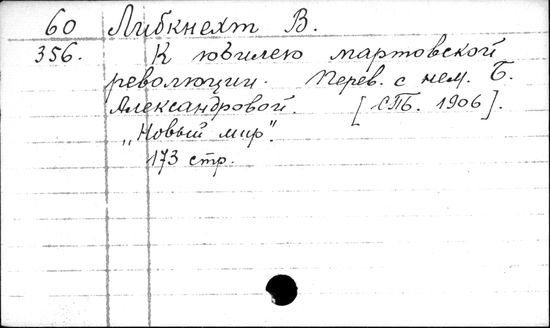 60 Либкнехт В.
356. К юбилею мартовской
революции. Перев. с нем. Б.
Александровой. [СПБ. 1906].
„Новый мир".
173 стр.